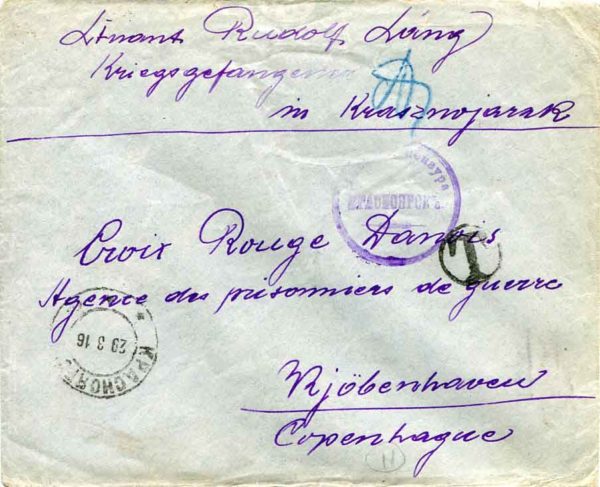 Ltnant Rudolf Láng
Kriegsgefangener
in Krasznojarsk
КРАСНОЯРСКЪ
Croix Rouge Danois
T
Agence des prisonniers de guerre
29 3 16
КРАСНОЯ
Kjöbenhaven
Copenhague